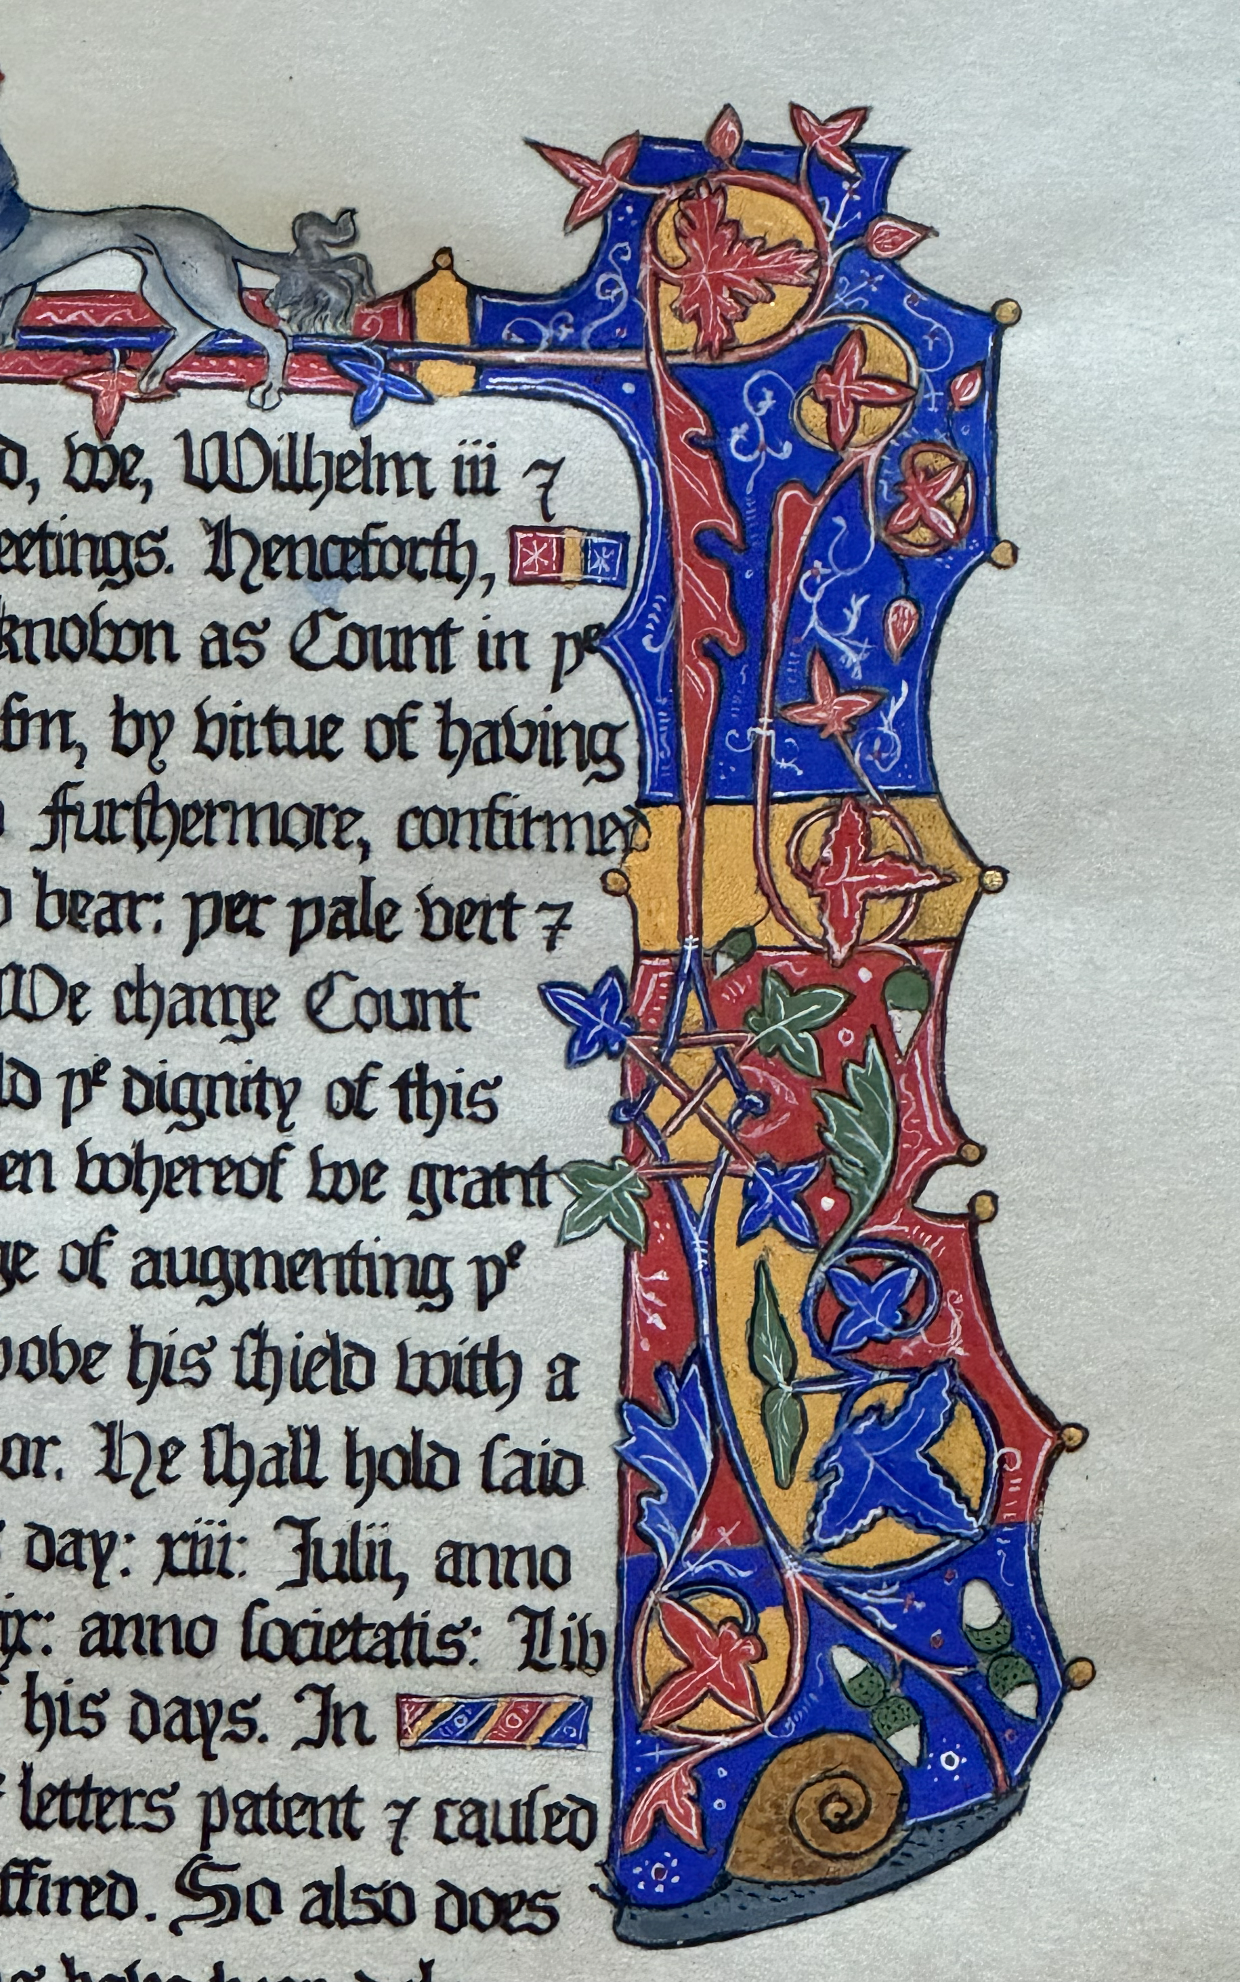 we, Wilhelm iii ⁊
eetings. Henceforth,
known as Count in yͤ
by virtue of having
Furthermore, confirmed
bear: per pale vert ⁊
We charge Count
ld yͤ dignity of this
en whereof we grant
ge of augmenting yͤ
bove his ſhield with a
or. He ſhall hold ſaid
day: xiii: Julii, anno
anno ſocietatis: Lib
his days. In
letters patent ⁊ cauſed
ffixed. So also does